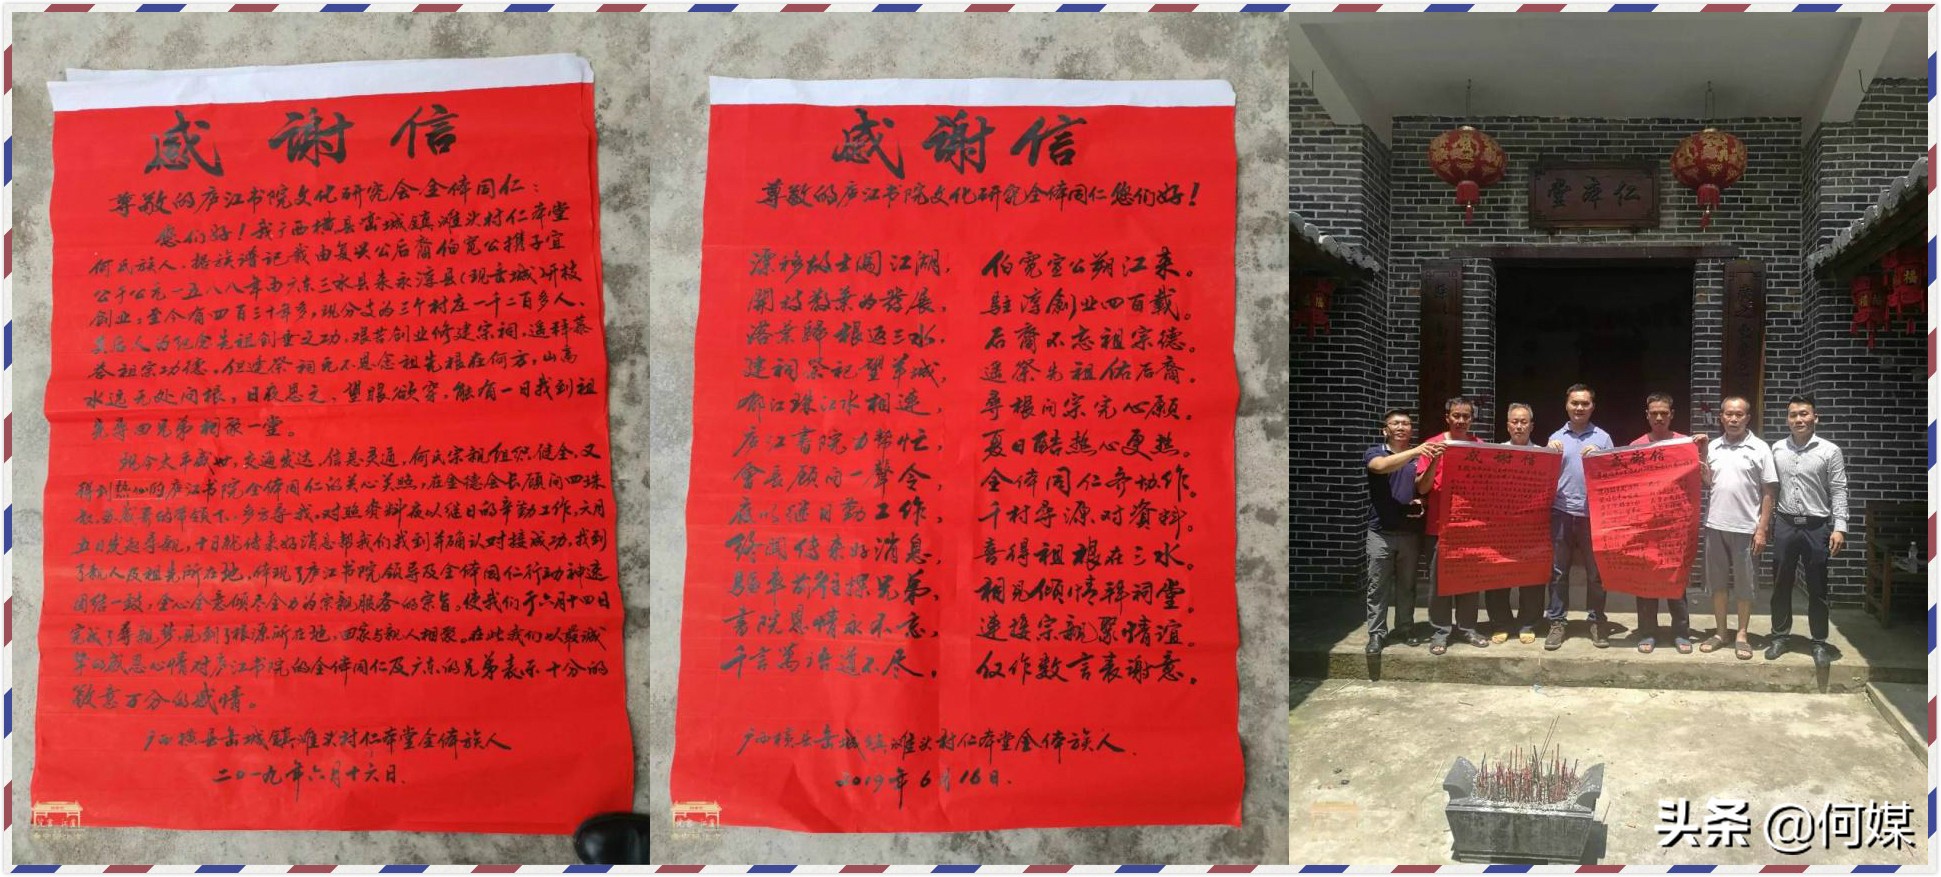 感谢信
尊敬的庐江书院文化研究会全体同仁：
您们好！我广西横县峦城镇滩头村仁本堂
何氏族人，据族谱记载由复兴公后裔伯宽公携子宜
公于公元一五八八年由广东三水县来永淳县(现峦城)开枝
创业，至今有四百三十年多，现分支为三个村庄一千二百多人、
其后人为纪念先祖创垂之功，艰苦创业修建宗祠，遥拜慕
恭祖宗功德。但逢祭祠无不思念祖先根在何方，山高
水远无处问根，日夜思之，望眼欲穿，能有一日找到祖
先寻回兄弟相聚一堂。
现今太平盛世，交通发达，信息灵通，何氏宗亲组织健全，又
得到热心的庐江书院全体同仁的关心关照，在金德会长顾问四珠
的带领下，多方寻找，对照资料夜以继日的辛勤工作，六月
五日发起寻亲，十日就传来好消息帮我们找到并确认对接成功，找到
了亲人及祖先所在地，体现了庐江书院领导及全体同仁行动神速
团结一致，全心全意倾尽全力为宗亲服务的宗旨。使我们于六月十四日
完成了寻亲梦，见到了根源所在地，回家与亲人相聚。在此我们以最诚
挚的感恩心情对庐江书院的全体同仁及广东的兄弟表示十分的
敬意万分的感情。
广西横县峦城镇滩头村仁本堂全体族人
二〇一九年六月十六日.
感谢信
尊敬的庐江书院文化研究全体同仁您们好！
漂移故土闯江湖， 伯宽宜公朔江来。
開枝散葉为發展， 駐淳創业四百载。
落葉歸根返三水， 后裔不忘祖宗德。
建祠祭祀望羊城， 遥祭先祖佑后裔。
郁江珠江水相连， 尋根问宗完心願。
庐江書院力帮忙， 夏日酷热心更热。
會長顧问一聲令， 全体同仁齐协作。
夜以继日勤工作， 千村尋源对資料。
终闻传来好消息， 喜得祖根在三水。
驅车前往探兄弟， 相見傾情拜祠堂。
書院恩情永不忘， 連接宗親聚情谊。
千言萬语道不尽， 仅作数言表谢意。
广西横县峦城镇滩头村仁本堂全体族人.
2019年6月16日.
仁本堂
感谢信
感谢信
福
头条 @何媒